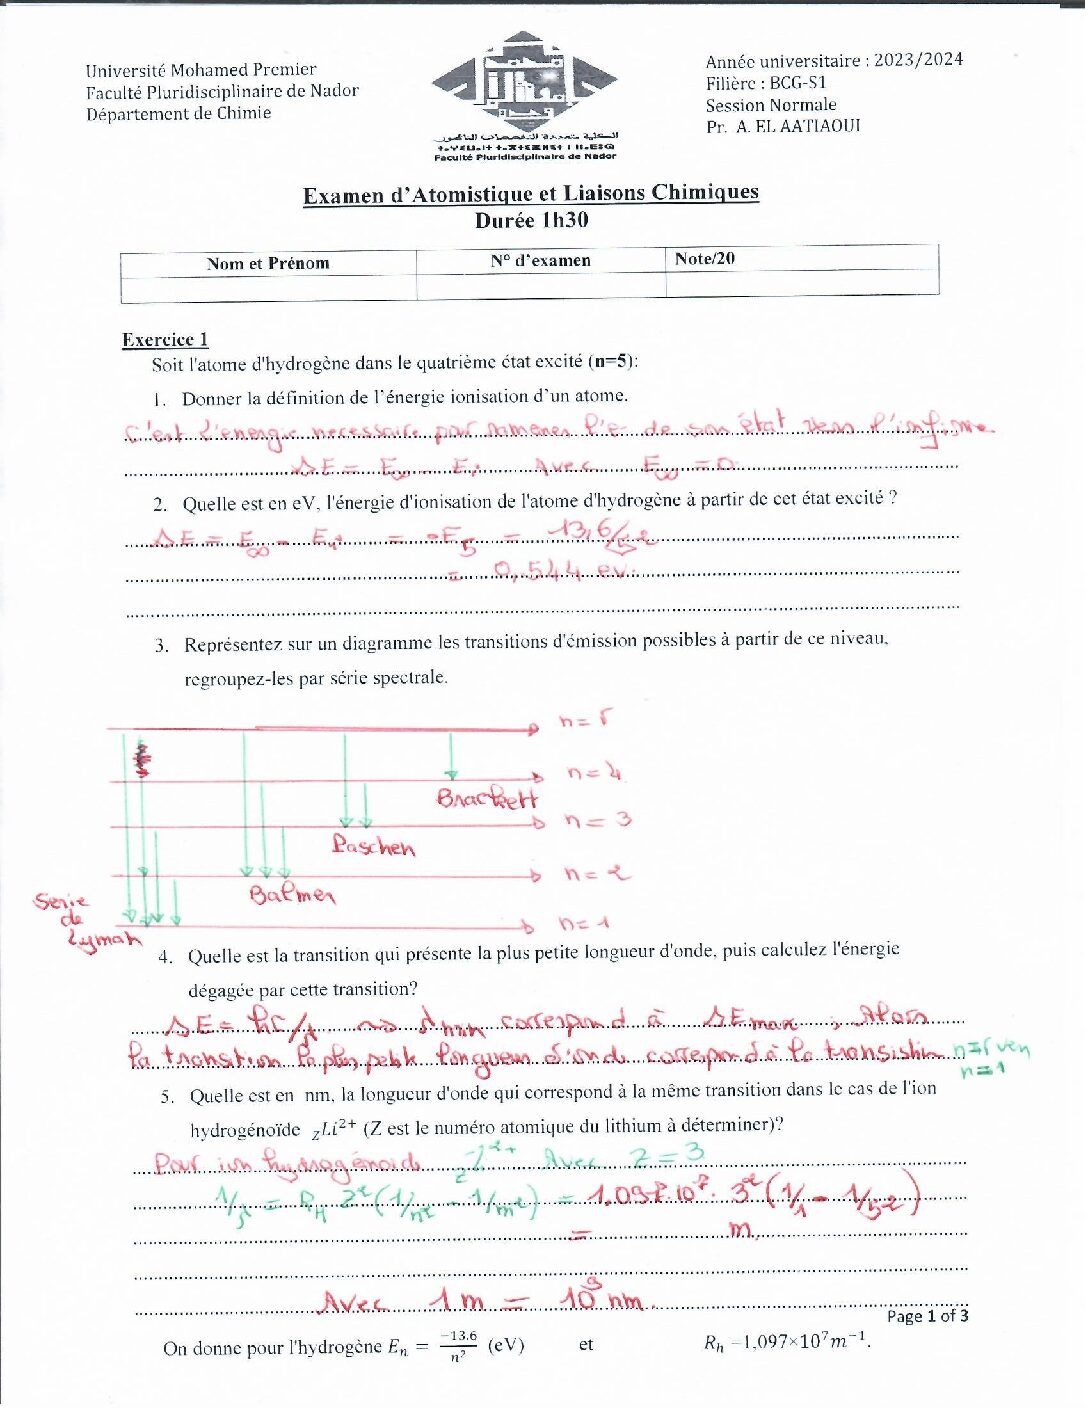 Université Mohamed Premier
Faculté Pluridisciplinaire de Nador
Département de Chimie
Faculté Pluridisciplinaire de Nador
Année universitaire : 2023/2024
Filière : BCG-S1
Session Normale
Pr. A. EL AATIAOUI
Examen d'Atomistique et Liaisons Chimiques
Durée 1h30
Nom et Prénom N° d'examen Note/20
Exercice 1
Soit l'atome d'hydrogène dans le quatrième état excité (n=5):
1. Donner la définition de l'énergie ionisation d'un atome.
C'est l'energie necessaire pour ramener l'e- de son état vers l'infine
ΔE = E∞ - Ei Avec E∞ = 0
2. Quelle est en eV, l'énergie d'ionisation de l'atome d'hydrogène à partir de cet état excité ?
ΔE = E∞ - Ei = -E5 = 13,6/5²
= 0,544 ev.
3. Représentez sur un diagramme les transitions d'émission possibles à partir de ce niveau,
regroupez-les par série spectrale.
n = 5
n = 4
Brackett
n = 3
Paschen
n = 2
Balmer
Serie
de
Lyman
n = 1
4. Quelle est la transition qui présente la plus petite longueur d'onde, puis calculez l'énergie
dégagée par cette transition?
ΔE = hC/λ correspond à ΔEmax , Alors
la transition la plus petite longueur d'onde correspond à la transistion n=5 ver
n=1
5. Quelle est en nm, la longueur d'onde qui correspond à la même transition dans le cas de l'ion
hydrogénoïde ZLi²⁺ (Z est le numéro atomique du lithium à déterminer)?
Pour ion hydrogénoid Avec Z = 3
1/λ = RH Z²(1/n² - 1/m²) = 1.097.10⁷. 3²(1/1 - 1/5²)
= m.
Avec 1m = 10⁹ nm.
Page 1 of 3
On donne pour l'hydrogène En = -13.6/n² (eV) et Rh =1,097×10⁷m⁻¹.